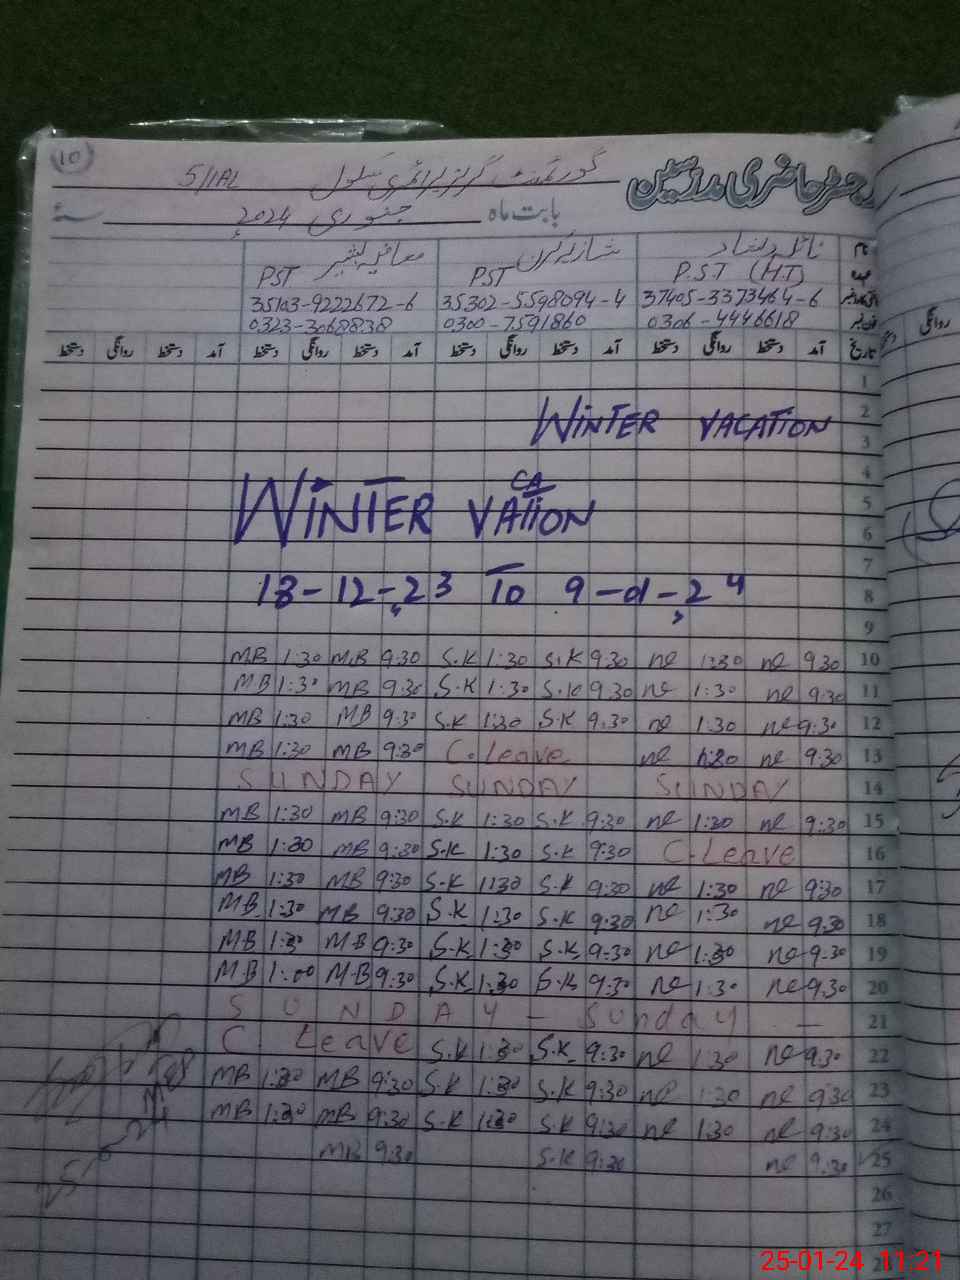 10
رجسٹر حاضری مدرسین گورنمنٹ گرلز پرائمری سکول 5/1AL
بابت ماہ جنوری 2024ء سنہ
نام شازیہ کرن
عہدہ P.ST (H.T) PST PST
37405-3373464-6 35302-5598094-4 35103-9222672-6
فون نمبر 0306-4446618 0300-7591860 0323-3068838
تاریخ آمد دستخط روانگی دستخط آمد دستخط روانگی دستخط آمد دستخط روانگی دستخط آمد دستخط روانگی دستخط
1
2 WINTER VACATION
3
4
5 WINTER VATION CA
6
7
8 18-12-23 TO 9-01-24
9
MB 1:30 MB 9:30 S.K 1:30 S.K 9:30 ne 1:30 ne 9:30 10
MB 1:30 MB 9:30 S.K 1:30 S.K 9:30 ne 1:30 ne 9:30 11
MB 1:30 MB 9:30 S.K 1:30 S.K 9:30 ne 1:30 ne 9:30 12
MB 1:30 MB 9:30 C.Leave ne 1:30 ne 9:30 13
SUNDAY SUNDAY SUNDAY 14
MB 1:30 MB 9:30 S.K 1:30 S.K 9:30 ne 1:30 ne 9:30 15
MB 1:30 MB 9:30 S.K 1:30 S.K 9:30 C.Leave 16
MB 1:30 MB 9:30 S.K 1:30 S.K 9:30 ne 1:30 ne 9:30 17
MB 1:30 MB 9:30 S.K 1:30 S.K 9:30 ne 1:30 ne 9:30 18
MB 1:30 MB 9:30 S.K 1:30 S.K 9:30 ne 1:30 ne 9:30 19
MB 1:00 MB 9:30 S.K 1:30 S.K 9:30 ne 1:30 ne 9:30 20
SUNDAY - Sunday - 21
C Leave S.K 1:30 S.K 9:30 ne 1:30 ne 9:30 22
MB 1:30 MB 9:30 S.K 1:30 S.K 9:30 ne 1:30 ne 9:30 23
MB 1:30 MB 9:30 S.K 1:30 S.K 9:30 ne 1:30 ne 9:30 24
MB 9:30 S.K 9:30 ne 9:30 25
26
27
25-01-24 11:21